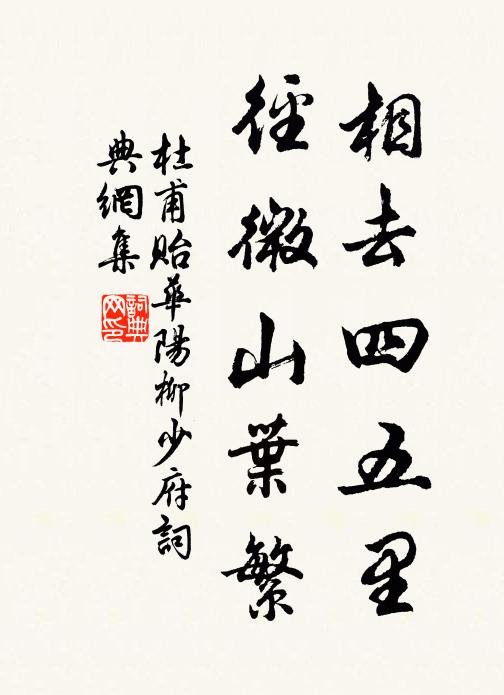 相去四五里
徑微山葉繁
杜甫貽華陽柳少府詞
典網集
詞典网印